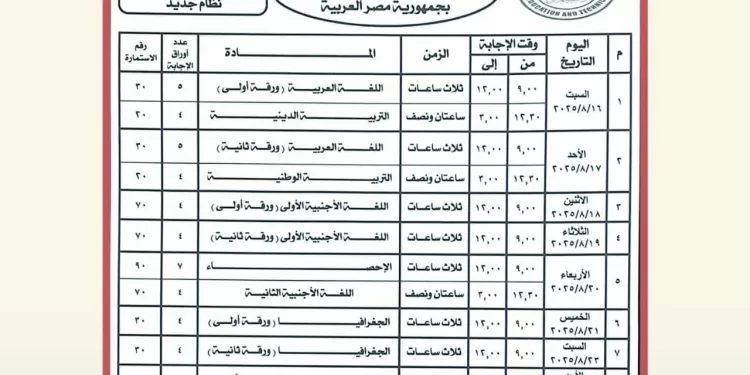 نظام جديد
بجمهورية مصر العربية
EDUCATION AND TECHNIC
م اليوم التاريخ وقت الإجابة من إلى الزمن المـــادة عدد أوراق الإجابة رقم الاستمارة
١ السبت ٢٠٢٥/٨/١٦ ٩,٠٠ ١٢,٠٠ ثلاث ساعات اللغة العربية (ورقة أولى) ٥ ٣٠
١٢,٣٠ ٣,٠٠ ساعتان ونصف التربية الدينية ٤ ٢٠
٢ الأحد ٢٠٢٥/٨/١٧ ٩,٠٠ ١٢,٠٠ ثلاث ساعات اللغة العربية (ورقة ثانية) ٥ ٣٠
١٢,٣٠ ٣,٠٠ ساعتان ونصف التربية الوطنية ٤ ٢٠
٣ الاثنين ٢٠٢٥/٨/١٨ ٩,٠٠ ١٢,٠٠ ثلاث ساعات اللغة الأجنبية الأولى (ورقة أولى) ٤ ٧٠
٤ الثلاثاء ٢٠٢٥/٨/١٩ ٩,٠٠ ١٢,٠٠ ثلاث ساعات اللغة الأجنبية الأولى (ورقة ثانية) ٤ ٧٠
٥ الأربعاء ٢٠٢٥/٨/٢٠ ٩,٠٠ ١٢,٠٠ ثلاث ساعات الإحصاء ٧ ٩٠
١٢,٣٠ ٣,٠٠ ساعتان ونصف اللغة الأجنبية الثانية ٤ ٧٠
٦ الخميس ٢٠٢٥/٨/٢١ ٩,٠٠ ١٢,٠٠ ثلاث ساعات الجغرافيا (ورقة أولى) ٤ ٣٠
٧ السبت ٢٠٢٥/٨/٢٣ ٩,٠٠ ١٢,٠٠ ثلاث ساعات الجغرافيا (ورقة ثانية) ٤ ٣٠